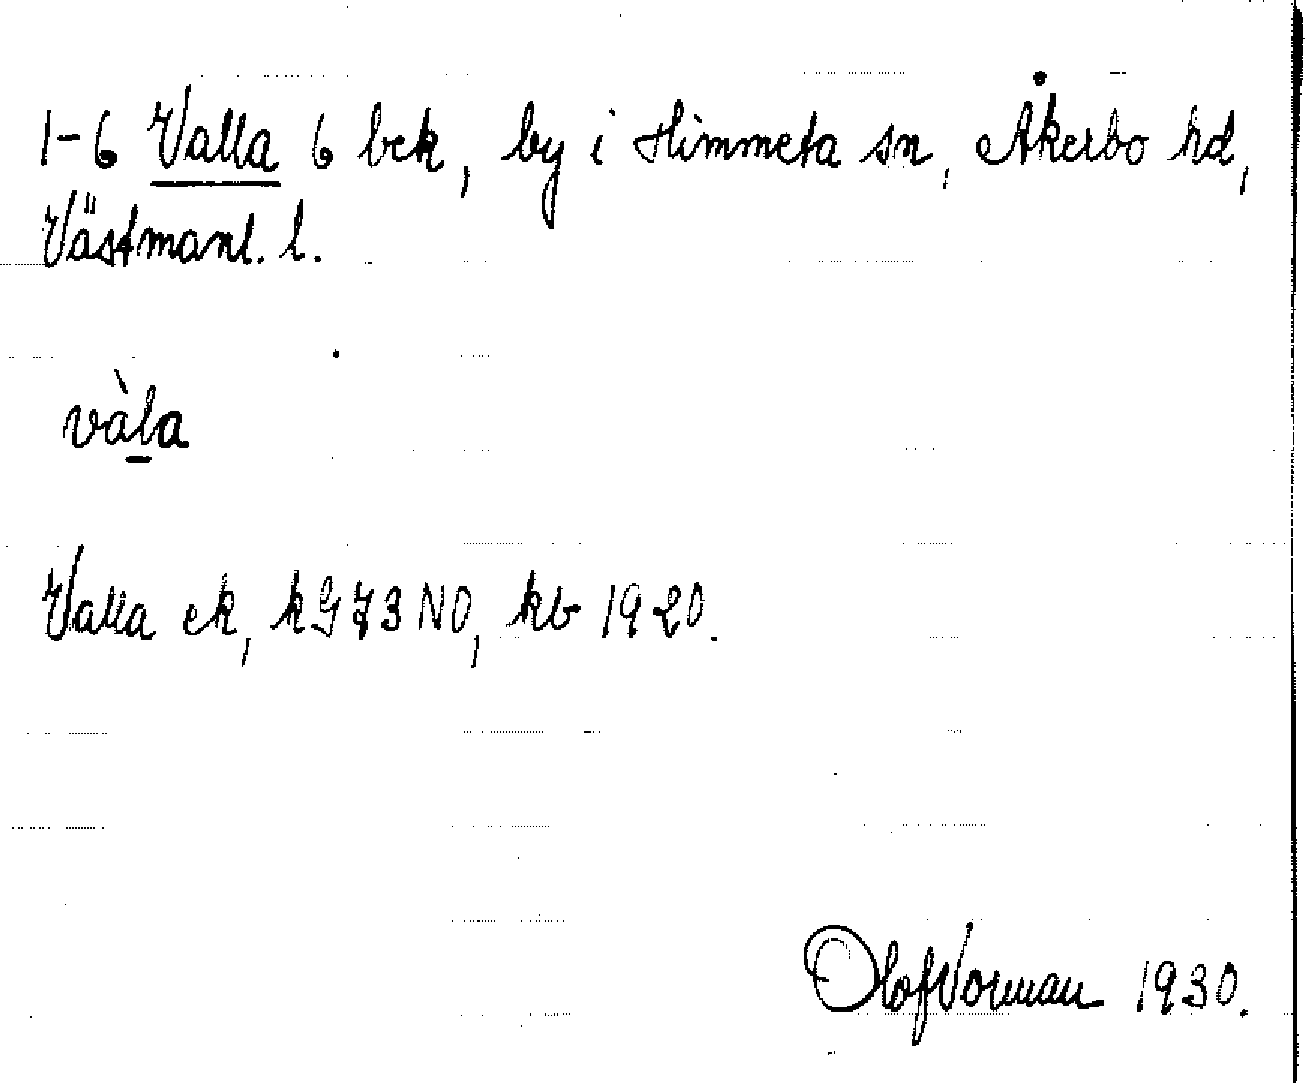 1-6 Valla 6 bek, by i Himmeta sn, Åkerbo hd,
Västmanl. l.
vàla
Valla ek, kG 73 NO, kb 1920.
Olof Norman 1930.